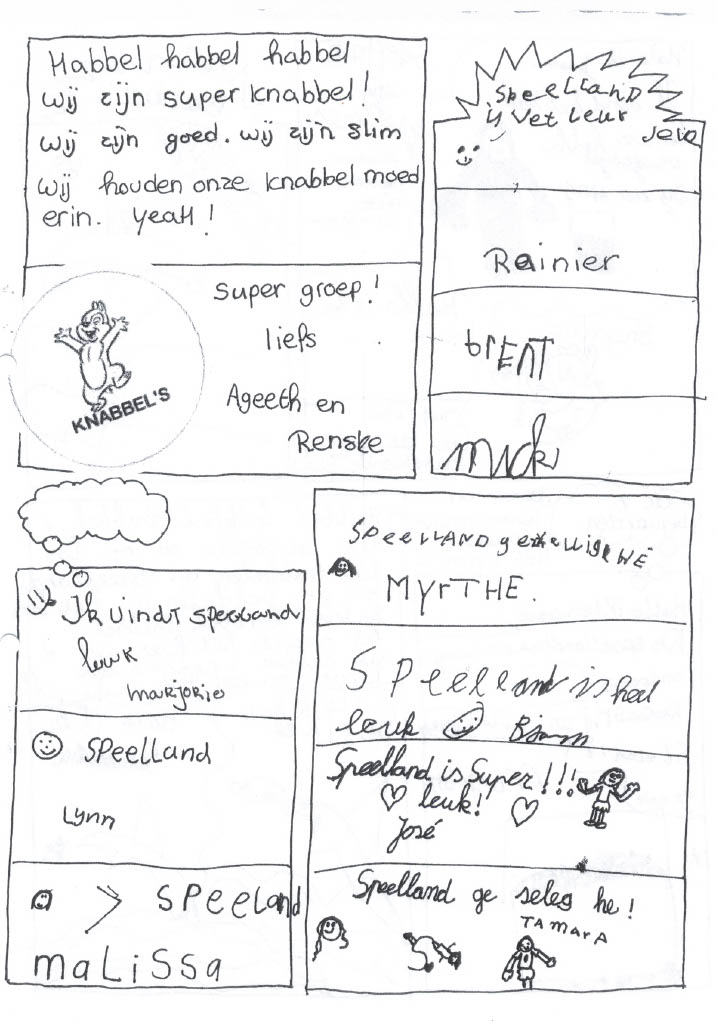 Habbel habbel habbel
wij zijn super knabbel!
wij zijn goed. wij zijn slim
wij houden onze knabbel moed
erin. yeaH!
super groep!
liefs
Ageeth en
Renske
KNABBEL'S
SpeelLanD
is vet leuk
Rainier
brENT
Ik vindt speelland
leuk
marjorie
SPeelLand
Lynn
SPeeLand
maLiSSa
MYrTHE.
SPeelland is heel
leuk
Speelland is Super!!!
leuk!
José
Speelland ge seleg he!
TAMARA